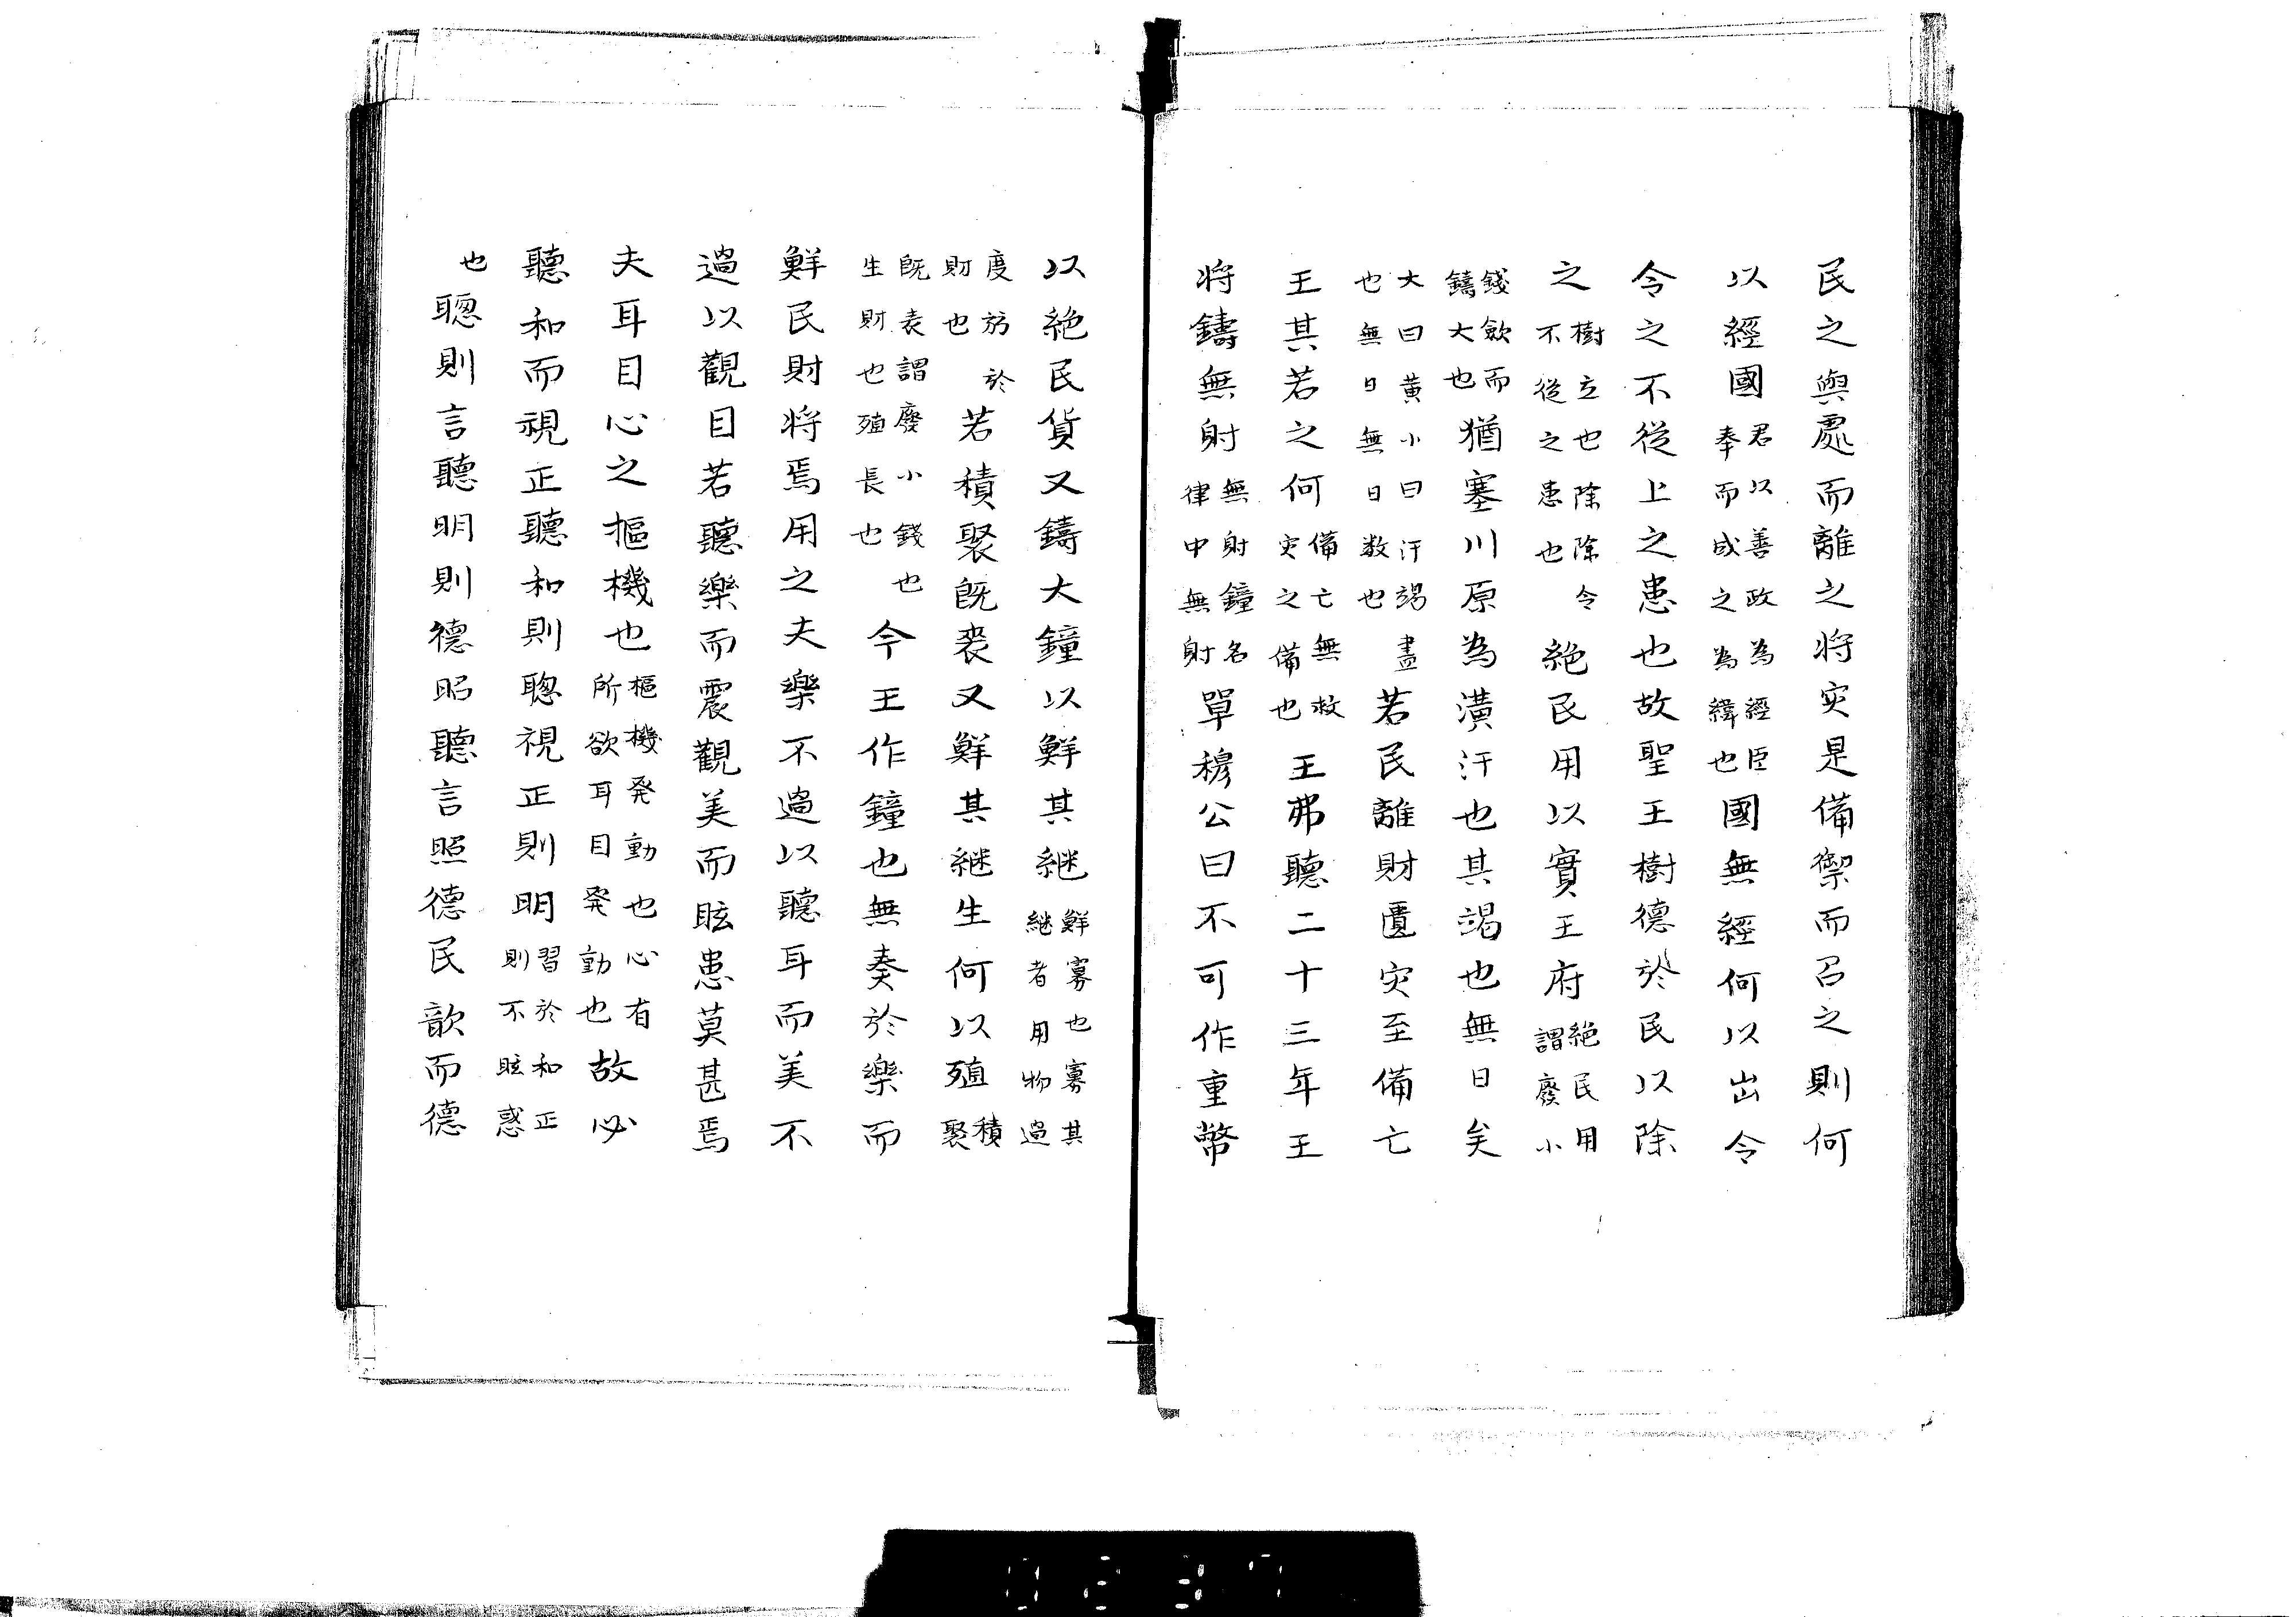 民之與處而離之将灾是備禦而召之則何
以經國君以善政為經臣奉而成之為緯也國無經何以出令
令之不從上之患也故聖王樹德於民以除
之樹立也除除令不從之患也絶民用以實王府絶民用謂廢小
錢歛而鑄大也猶塞川原為潢汙也其竭也無日矣
大曰黄小曰汙竭盡也無日無日数也若民離財匱灾至備亡
王其若之何備亡無救灾之備也王弗聽二十三年王
将鑄無射無射鐘名律中無射單穆公曰不可作重幣
以絶民貨又鑄大鐘以鮮其継鮮寡也寡其継者用物過
度妨於財也若積聚既喪又鮮其継生何以殖積聚
既喪謂廢小錢也生財也殖長也今王作鐘也無奏於樂而
鮮民財将焉用之夫樂不過以聽耳而美不
過以觀目若聽樂而震觀美而眩患莫甚焉
夫耳目心之樞機也樞機発動也心有所欲耳目発動也故必
聽和而視正聽和則聰視正則明習於和正則不眩惑
也聰則言聽明則德昭聽言照德民歆而德